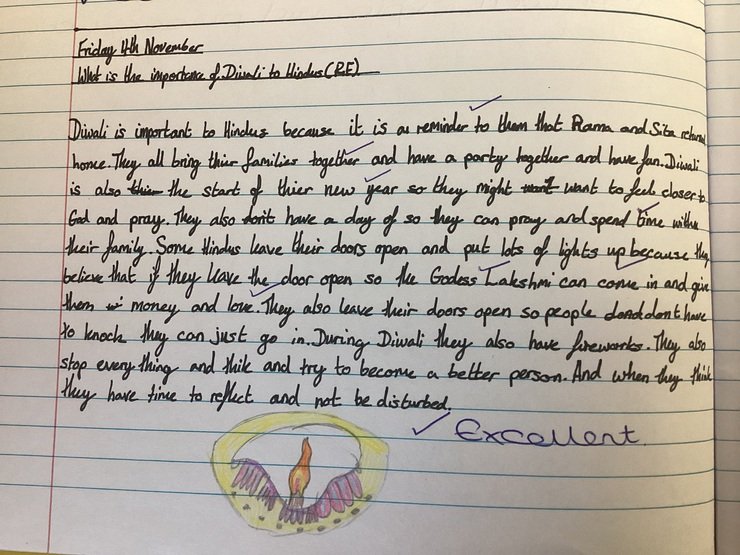 Friday 4th November
What is the importance of Diwali to Hindus (R.E)
Diwali is important to Hindus because it is a reminder to them that Rama and Sita returned
home. They all bring thier families together and have a party together and have fun. Diwali
is also the start of thier new year so they might want to feel closer to
God and pray. They also have a day of so they can pray and spend time with
their family. Some Hindus leave their doors open and put lots of lights up because they
believe that if they leave the door open so the Godess Lakshmi can come in and give
them money and love. They also leave their doors open so people dont have
to knock they can just go in. During Diwali they also have fireworks. They also
stop every thing and thik and try to become a better person. And when they think
they have time to reflect and not be disturbed.
Excellent